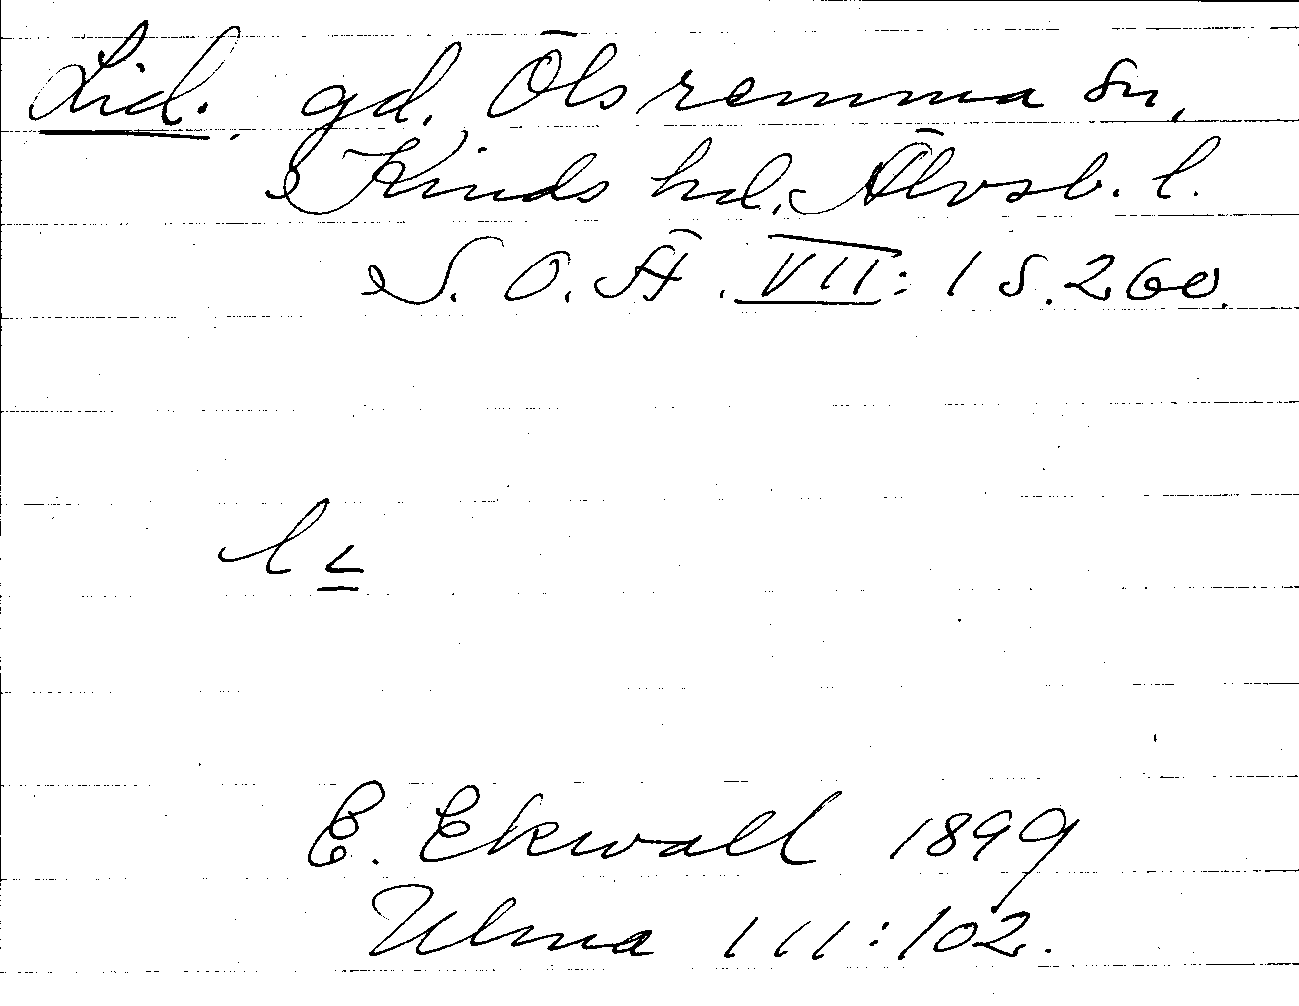 Lid. gd. Ölsremma sn,
Kinds hd. Älvsb. l.
S. O. Ä. VII: 1 s. 260.
E. Ekwall 1899
Ulma 111:102.